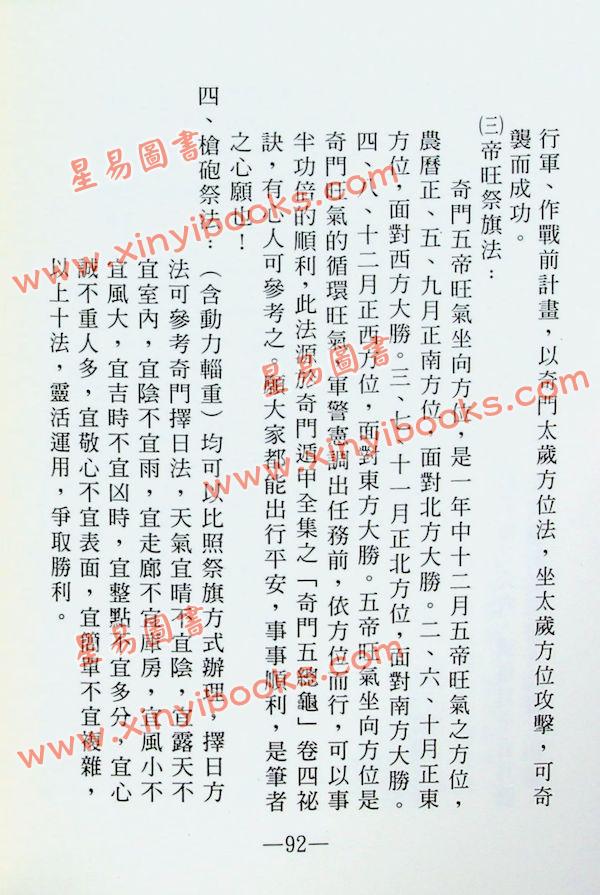 行軍、作戰前計畫，以奇門太歲方位法，坐太歲方位攻擊，可奇
襲而成功。
㈢帝旺祭旗法：
奇門五帝旺氣坐向方位，是一年中十二月五帝旺氣之方位，
農曆正、五、九月正南方位，面對北方大勝。二、六、十月正東
方位，面對西方大勝。三、七、十一月正北方位，面對南方大勝。
四、八、十二月正西方位，面對東方大勝。五帝旺氣坐向方位是
奇門旺氣的循環旺氣，軍警憲調出任務前，依方位而行，可以事
半功倍的順利，此法源於奇門遁甲全集之「奇門五總龜」卷四祕
訣，有心人可參考之。願大家都能出行平安，事事順利，是筆者
之心願也！
四、槍砲祭法：（含動力輜重）均可以比照祭旗方式辦理，擇日方
法可參考奇門擇日法，天氣宜晴不宜陰，宜露天不
宜室內，宜陰不宜雨，宜走廊不宜庫房，宜風小不
宜風大，宜吉時不宜凶時，宜整點不宜多分，宜心
誠不重人多，宜敬心不宜表面，宜簡單不宜複雜，
以上十法，靈活運用，爭取勝利。
—92—
星易圖書
www.xinyibooks.com
星易圖書
www.xinyibooks.com
星易圖書
www.xinyibooks.com